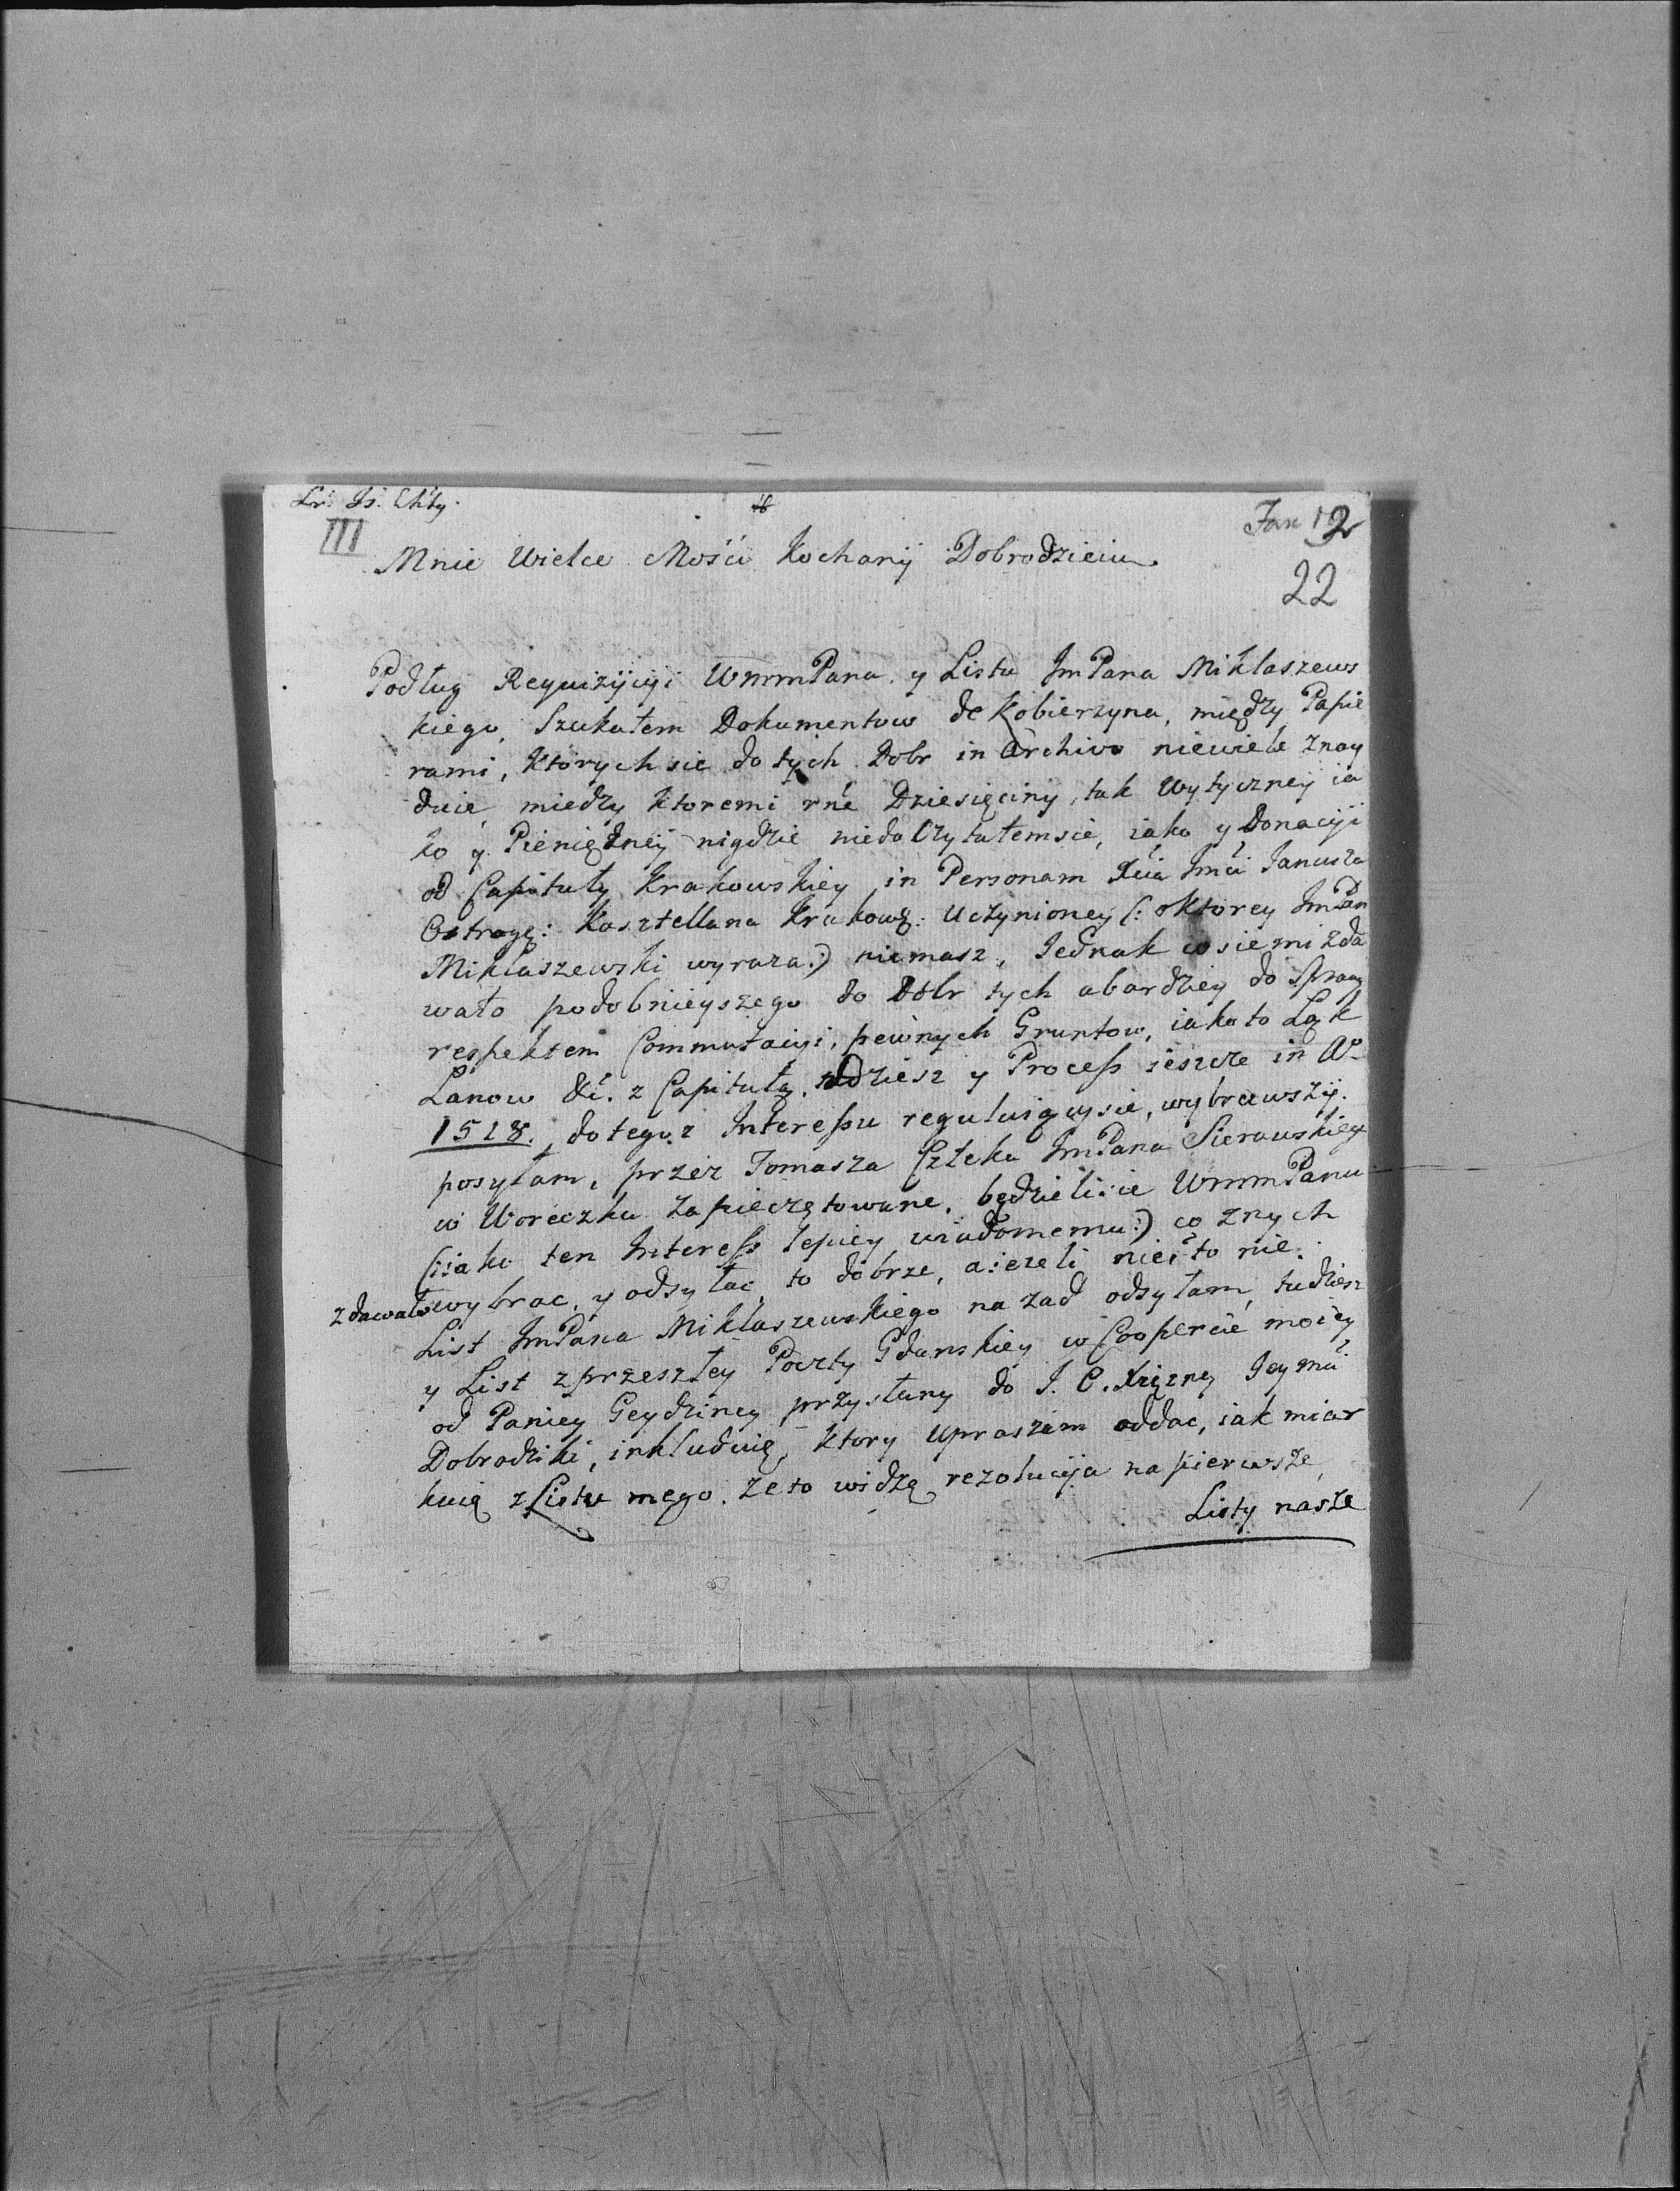 III
Jan 12
22
Mnie Wielce Mości Kochanÿ Dobrodzieiu
Podług Requizÿcÿi WmmPana y Listu JmPana Miklaszews
kiego, Szukałem Dokumentow de Kobierzyna, między Papie
rami, ktorych sie do tych Dobr in Archivo niewiele znay
duie, miedzy ktoremi rńe Dziesięciny, tak Wytyczneÿ ia
ko y Pieniężneÿ nigdzie niedoczytałemsie, iako y Donacÿi
od Capituły Krakowskiey in Personam Xcia Jmci Janusza
Ostrogs: Kasztellana Krakows: Uczynioney (: o ktorey JmPan
Miklaszewski wyraza:) niemasz, Jednak co sie mi zda
wało podobnieyszego do Dobr tych abardziey do sprawy
respektem Commutacÿi, pewnych Gruntow, iako to Łąk
Łanow &c. z Capitułą, tudziesz y Process ieszcze in Ao
1518. do tego z Interessu reguluiącysie, wybrawszÿ.
posyłam, przez Tomasza Człeka JmPana Sierawskieg
w Woreczku zapieczętowane, będzieli sie WmmPanu
(: iako ten Interess lepiey wiadomemu:) co znych
zdawało wybrac, y odsyłac, to dobrze, aiezeli nie, to nie.
List JmPana Miklaszewskiego nazad odsyłam, tudziesz
y List zprzeszłey Poczty Gdanskiey w Coopercie moiey
od Paniey Geydziney przysłany do J. O. Xięzney Jeymci
Dobrodziki, inkluduię, ktory upraszam oddac, iak miar
kuię z Listu mego. Zeto widzę rezolucÿa na pierwsze
Listy nasze